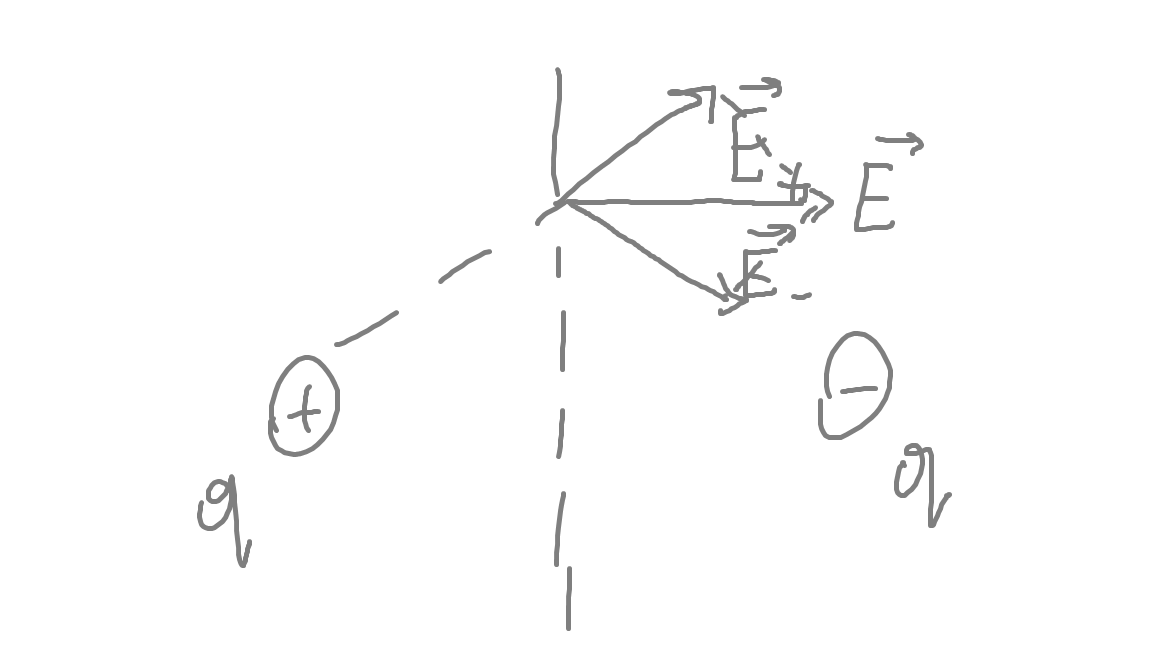 E⃗₊
E⃗
E⃗₋
+
−
q
q